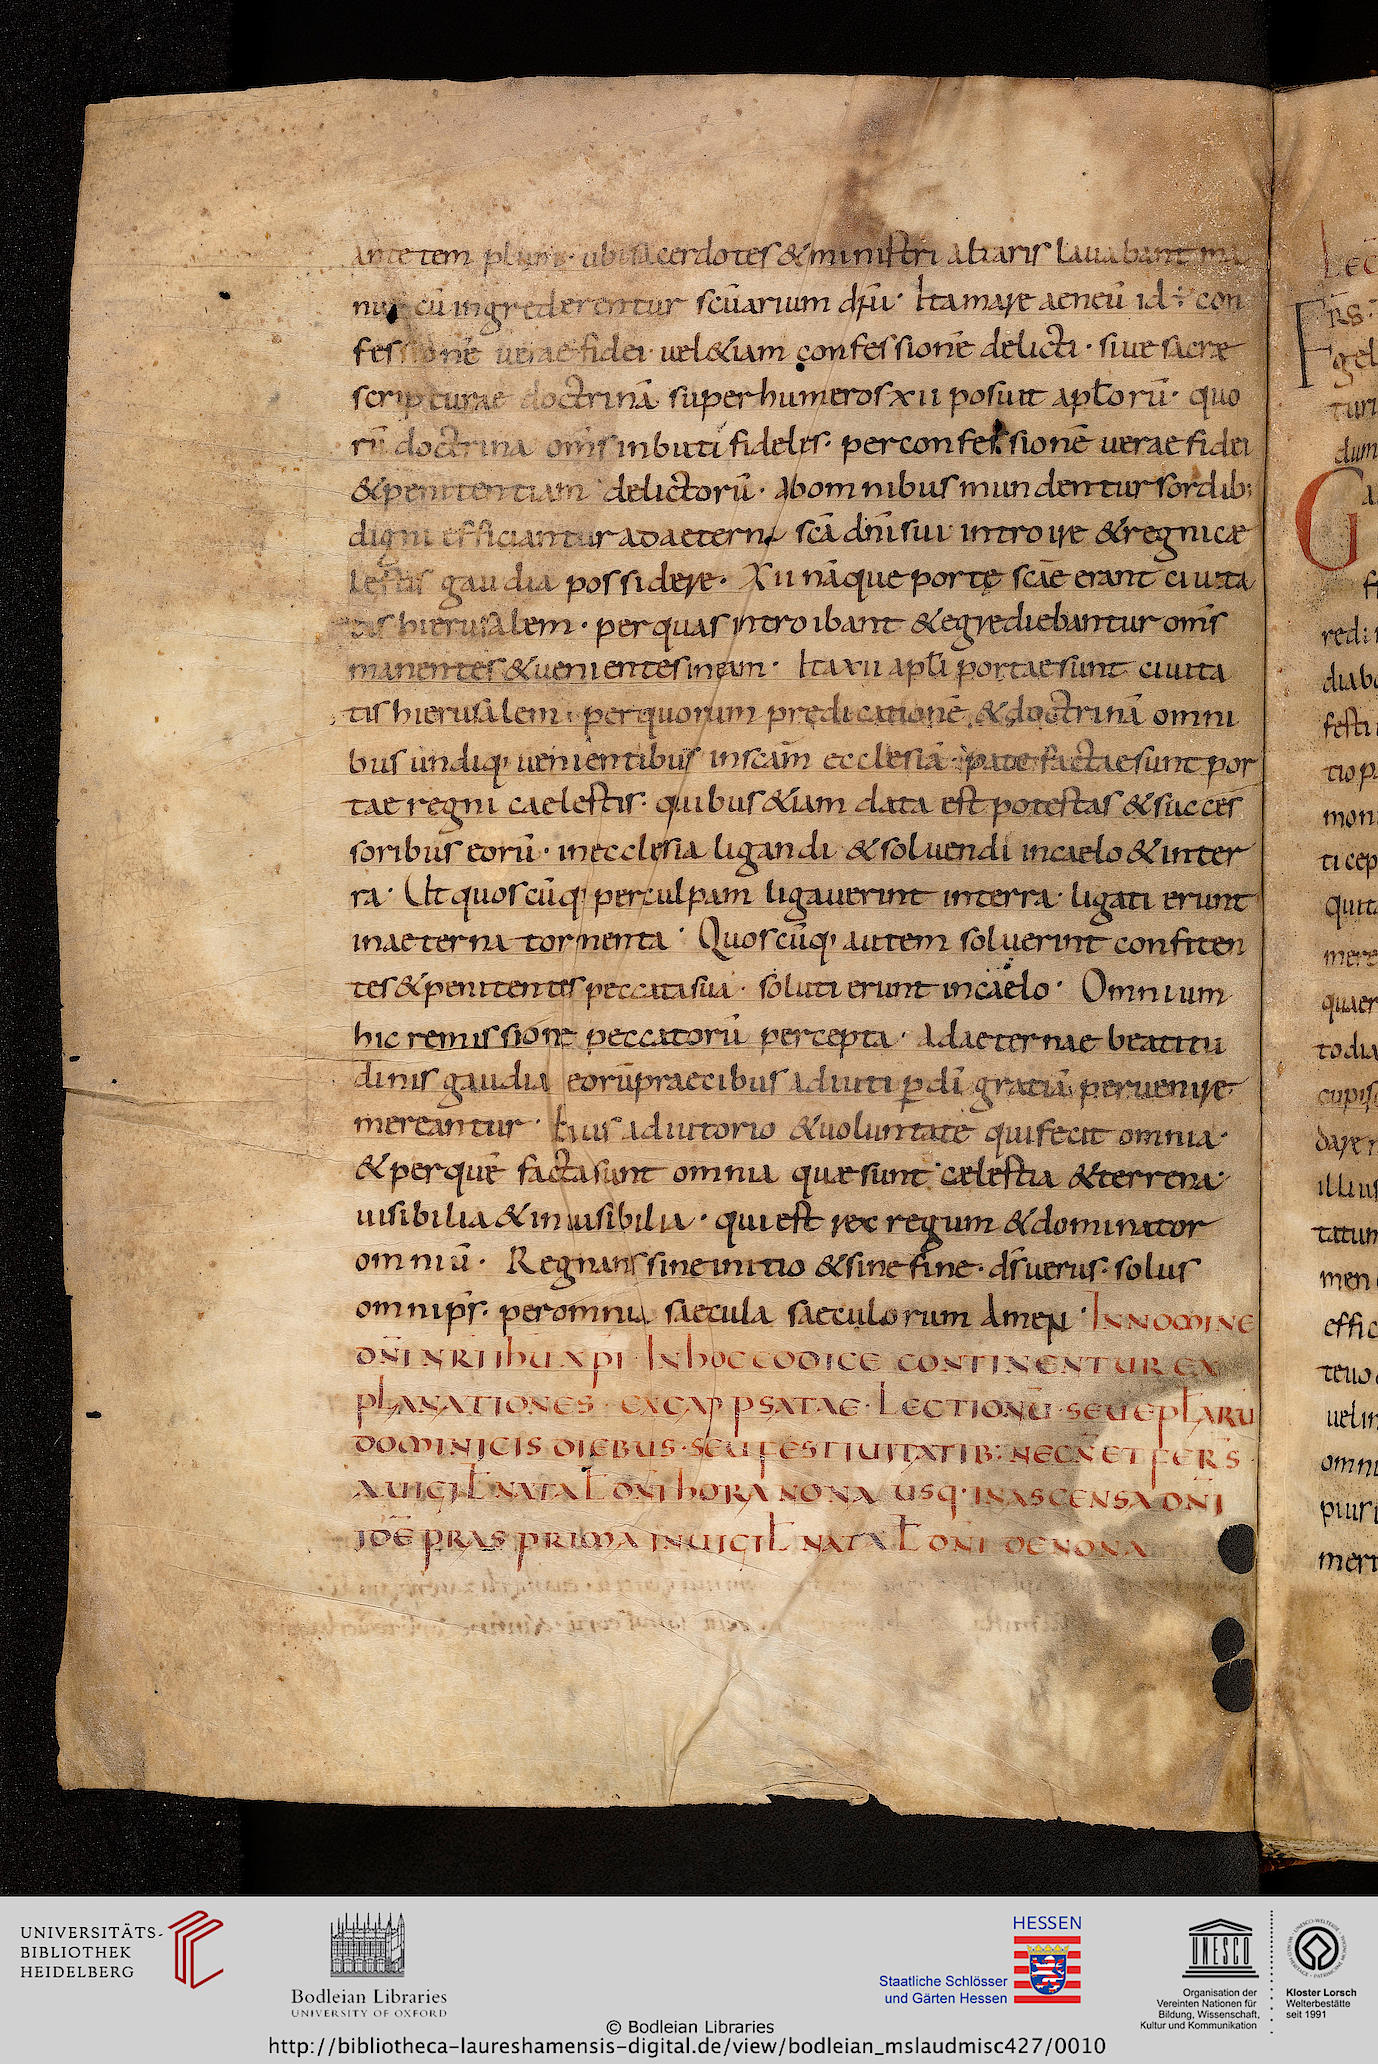 ante templum · ubi sacerdotes & ministri altaris lauabant ma
nus cū ingrederentur sc̄uarium dn̄i · Ita mare aeneū id ÷ con
fessionē uerae fidei · uel &iam confessionē delicti · siue sacrae
scripturae doctrinā super humeros xii posuit apl̄orū · quo
rū doctrina om̄s inbuti fideles · per confessionē uerae fidei
& penitentiam delictorū · Ab omnibus mundentur sordib;
digni efficiantur ad aeterna sc̄a dn̄i sui introire & regni cæ
lestis gaudia possidere · Xii nāque porte sc̄ae erant ciuita
tis hierusalem · per quas introibant & egrediebantur om̄s
manentes & uenientes in eam · Ita xii apl̄i portae sunt ciuita
tis hierusalem · per quorum predicationē & doctrinā omni
bus undiq· uenientibus in sc̄am ecclesiā · patefactae sunt por
tae regni caelestis · quibus &iam data est potestas & succes
soribus eorū · in ecclesia ligandi & soluendi in caelo & in ter
ra · Ut quoscūq· per culpam ligauerint in terra · ligati erunt
in aeterna tormenta · Quoscūq· autem soluerint confiten
tes & penitentes peccata sua · soluti erunt in caelo · Omnium
hic remissione peccatorū percepta · ad aeternae beatitu
dinis gaudia eorū praecibus adiuti p̱ dī gratiā peruenire
mereantur · Eius adiutorio & uoluntate qui fecit omnia ·
& per quē facta sunt omnia quæ sunt cælestia & terrena ·
uisibilia & inuisibilia · qui est rex regum & dominator
omniū · Regnans sine initio & sine fine · ds̄ uerus · solus
omnip̄s · per omnia saecula saeculorum Amen · IN NOMINE
DN̄I NRI IHU XPI · IN HOC CODICE CONTINENTUR EX
PLANATIONES · EXCARPSATAE · LECTIONŪ · SEU EPL̄ARŪ
DOMINICIS DIEBUS · SEU FESTIUITATIB; NECN̄ ET FER̄S
A UIGIL̄ NATAL̄ DN̄I HORA NONA USQ· IN ASCENSA DN̄I
ID̄E P̄RAS PRIMA IN UIGIL̄ NATAL̄ DN̄I DE NONA
UNIVERSITÄTS-
BIBLIOTHEK
HEIDELBERG
Bodleian Libraries
UNIVERSITY OF OXFORD
HESSEN
Staatliche Schlösser
und Gärten Hessen
UNESCO
Organisation der
Vereinten Nationen für
Bildung, Wissenschaft,
Kultur und Kommunikation
Kloster Lorsch
Welterbestätte
seit 1991
© Bodleian Libraries
http://bibliotheca-laureshamensis-digital.de/view/bodleian_mslaudmisc427/0010